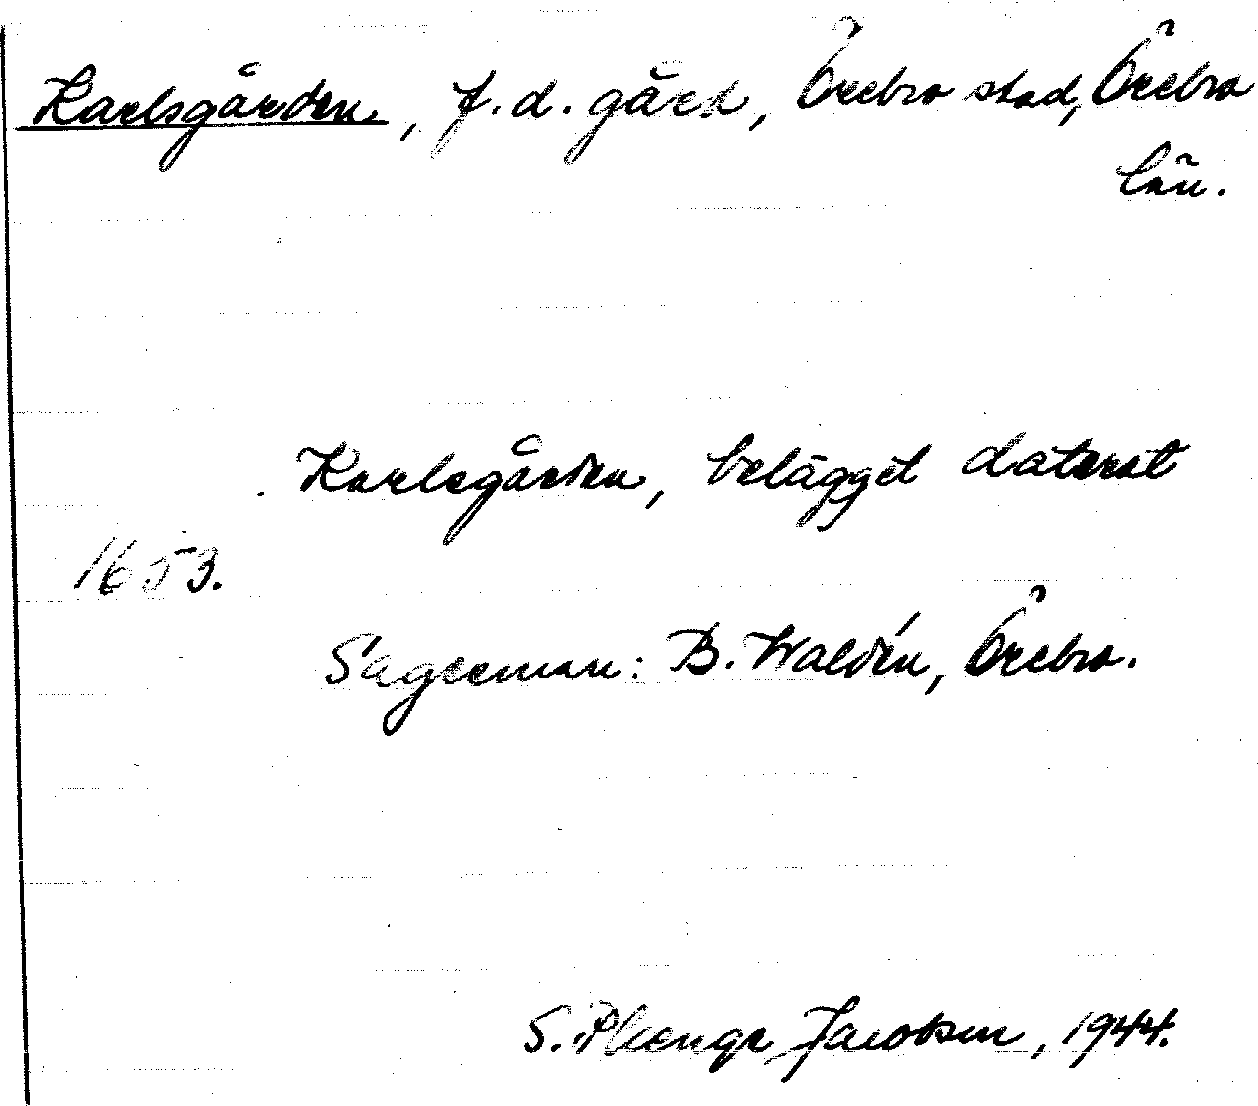 Karlsgården, f.d. gård, Örebro stad, Örebro
län.
Karlsgården, belägget daterat
1653.
Sagesman: B. Waldén, Örebro.
S. Plenge Jacobson, 1944.